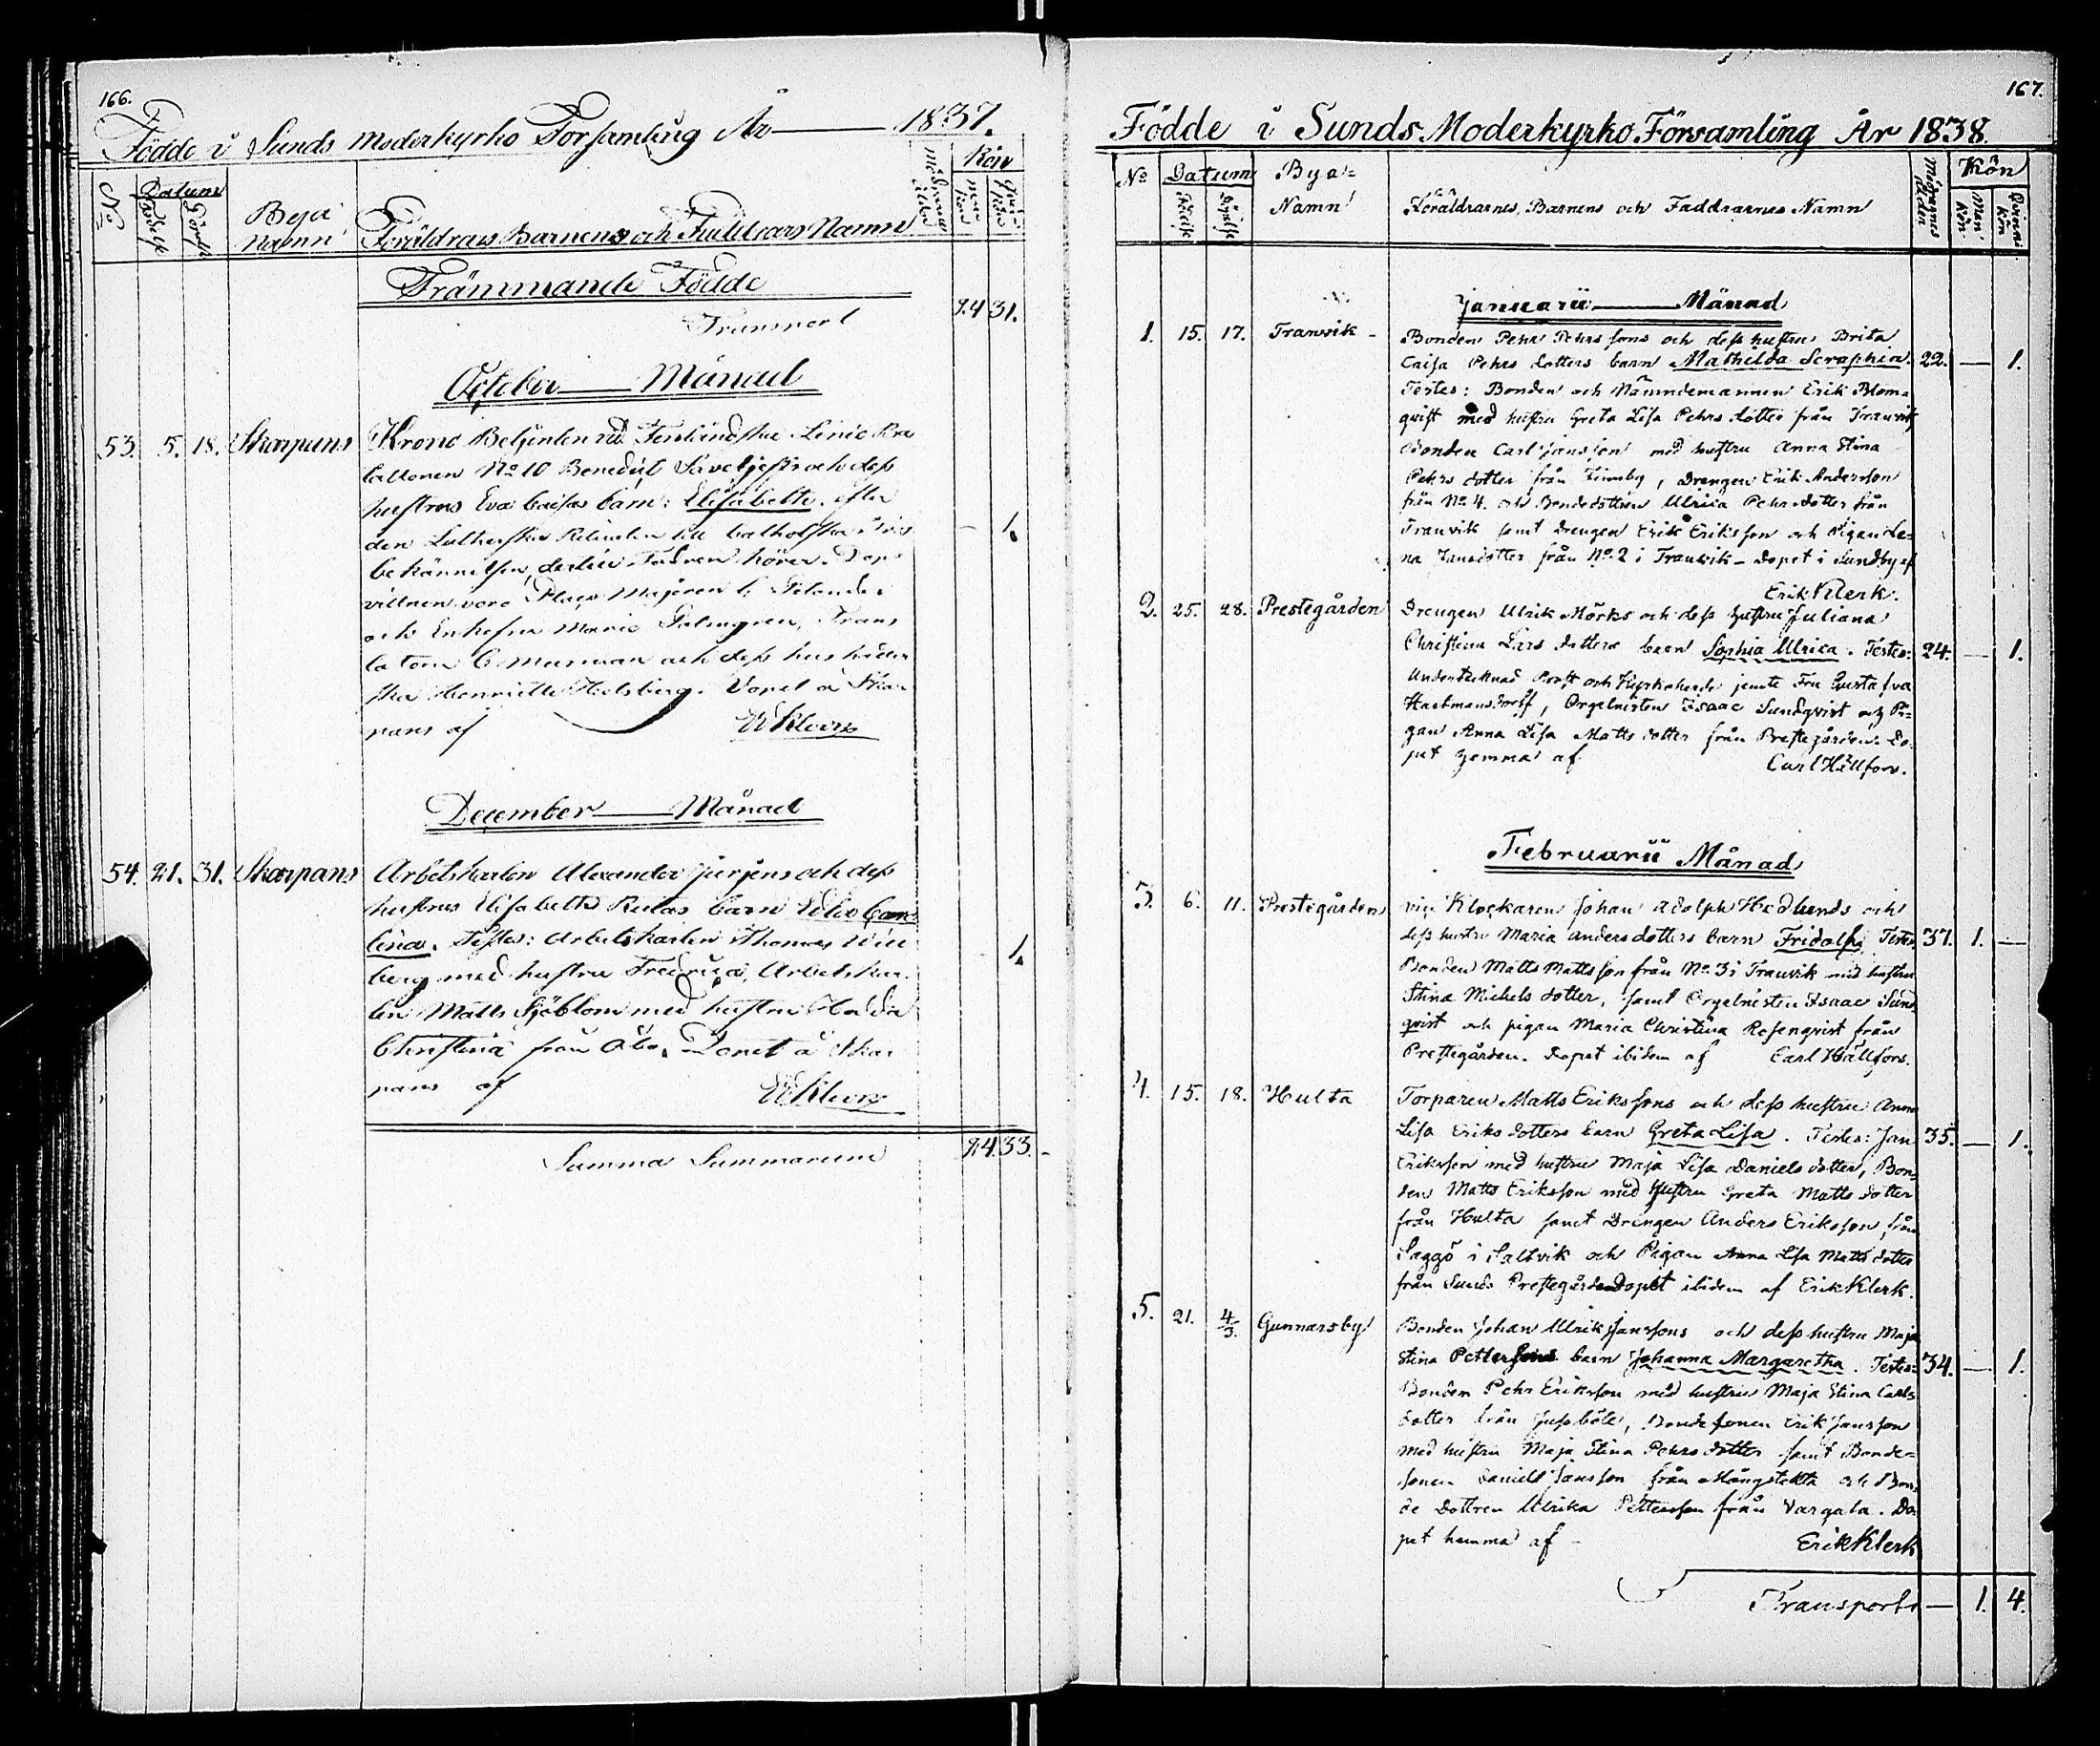 166.
Födde i Sunds Moderkyrko Församling År 1837.
No Datum Bya Namn Föräldrars Barnens och Faddrars Namn Kön
Främmande Födde
Transport 24 31.
October Månad
53. 5. 18. Skarpans Krono Betjenten vid Finlindska Linie Ba
taillonen No 10 Benedict och dess
hustrus Eva Caisas barn: Elisabetha. efter
den Lutherska till Catholska
bekännelsen, derlin Fadren hörer. Dop
vittnen voro Plats Majoren C.
och Enkefru Maria Palmgren, Trans
latorn C. Murman och dess hushåller
ska Henriette Helsberg. Döpet å Skar
pans af EKlerk
December Månad
54. 21. 31. Skarpans Arbetskarlen Alexander Jurjens och dess
hustrus Elisabetha Rutas barn Edla Caro
lina. Testes: Arbetskarlen Thomas Will
berg med hustru Fredrica, Arbetskar
len Matts Sjöblom med hustru Hedda
Christina från Åbo. Döpet å Skar
pans af EKlerk
Summa Summarum 24. 33.
167.
Födde i Sunds Moderkyrko Församling År 1838.
No Datum Bya= Namn Föräldrarnes, Barnens och Faddrarnes Namn Modrens ålder Kön
Födelse Döpelse Man kön Qvinn kön
Januarii Månad
1. 15. 17. Tranvik Bonden Pehr Pehrssons och dess hustru Brita
Caisa Pehrs dotters barn Mathilda Seraphia. 22. — 1.
Testes: Bonden och Nämndemannen Erik Blom
qvist med hustru Greta Lisa Pehrs dotter från Tranvik
Bonden Carl Jansson med hustru Anna Stina
Pehrs dotter från Finnby, Drengen Erik Andersson
från No 4. och Bondedottren Ulrica Pehrs dotter från
Tranvik samt drengen Erik Eriksson och Pigan Le=
na Jansdotter från No 2 i Tranvik — Döpet i Sundby af
Erik Klerk.
2. 25. 28. Prestegården Drengen Ulrik Mörks och dess hustru Juliana
Christina Lars dotters barn Sophia Ulrica. Testes: 24. — 1.
Undertecknad Prost och Kyrkoherde jemte Fru Gustafva
Hartmansdorff, Orgelnisten Isaac Sundqvist och Pi=
gan Anna Lisa Matts dotter från Prestegården. Dö
pet hemma af Carl Hällfors.
Februarii Månad
3. 6. 11. Prestegården vice Klockaren Johan Adolph Hedlunds och
dess hustru Maria Anders dotters barn Fridolf. Testes 37. 1. —
Bonden Matts Mattsson från No 3 i Tranvik med hustru
Stina Michels dotter, samt Orgelnisten Isaac Sund
qvist och pigan Maria Christina Rosenqvist från
Prestegården. Döpet ibidem af Carl Hällfors.
4. 15. 18. Hulta Torparen Matts Erikssons och dess hustru Anna
Lisa Eriks dotters barn Greta Lisa. Testes: Jan 35. — 1.
Eriksson med hustru Maja Lisa Daniels dotter, Bon
den Matts Eriksson med hustru Greta Matts dotter
från Hulta samt Drengen Anders Eriksson från
Saggö i Saltvik och Pigan Anna Lisa Matts dotter
från Sunds Prestegården Döpet ibidem af Erik Klerk.
5. 21. 4/3. Gunnarsby Bonden Johan Ulrik Janssons och dess hustru Maja
Stina Pettersons barn Johanna Margaretha. Testes= 34. — 1.
Bonden Pehr Eriksson med hustru Maja Stina Carls
dotter från Jussböle, Bondesonen Erik Jansson
med hustru Maja Stina Pehrs dotter samt Bonde=
sonen Daniel Jansson från Mångstekta och Bon
de dottren Ulrika Pettersson från Vargata. Dö
pet hemma af Erik Klerk
Transport — 1. 4.